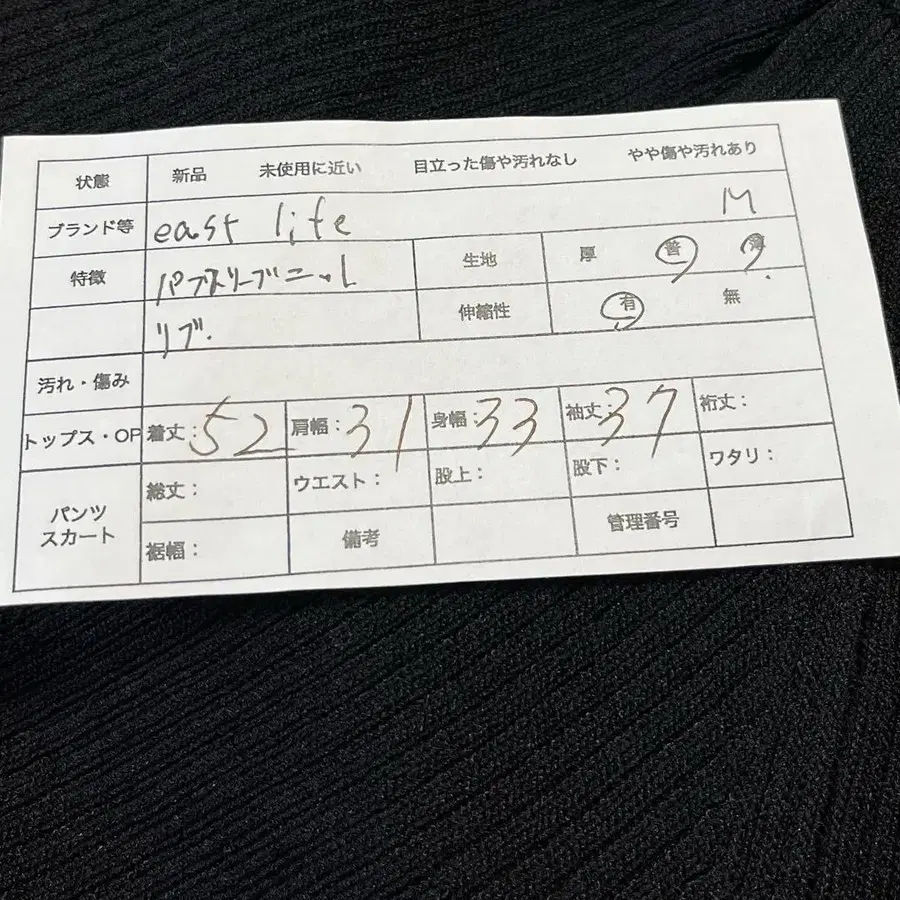 状態 新品 未使用に近い 目立った傷や汚れなし やや傷や汚れあり
ブランド等 east life M
特徴 パフスリーブニット 生地 厚 普 薄
リブ. 伸縮性 有 無
汚れ・傷み
トップス・OP 着丈:52 肩幅:31 身幅:33 袖丈:37 裄丈:
パンツ スカート 総丈: ウエスト: 股上: 股下: ワタリ:
裾幅: 備考 管理番号